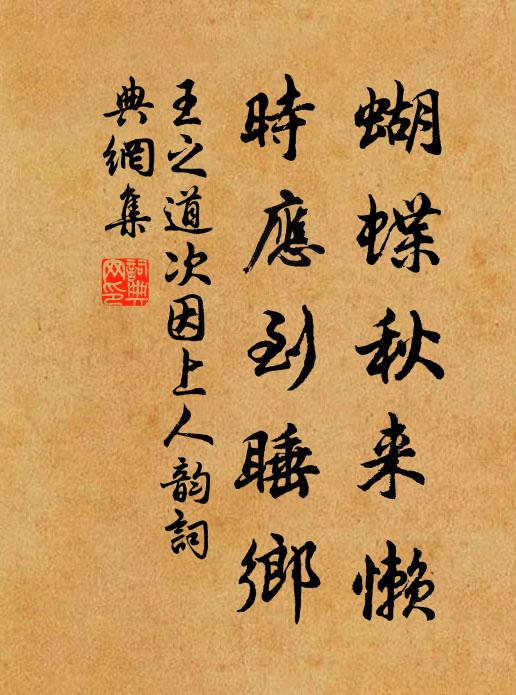 蝴蝶秋来懶
時應到睡鄉
王之道次因上人韵詞
典網集
詞典
网印